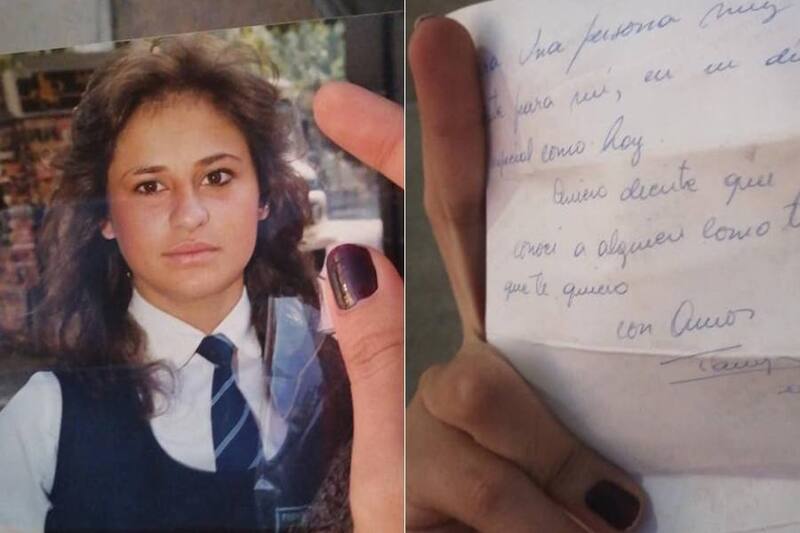 una persona muy
para mí, en un día
especial como hoy.
Quiero decirte que
conocí a alguien como t
que te quiero
con Amor